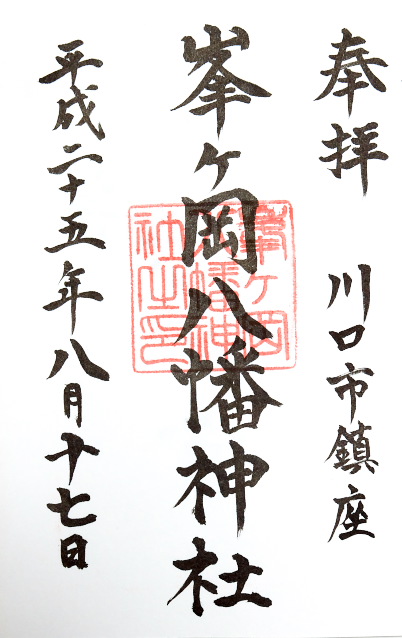 奉拝　川口市鎮座
峯ヶ岡八幡神社
峯ヶ岡八幡神社之印
平成二十五年八月十七日